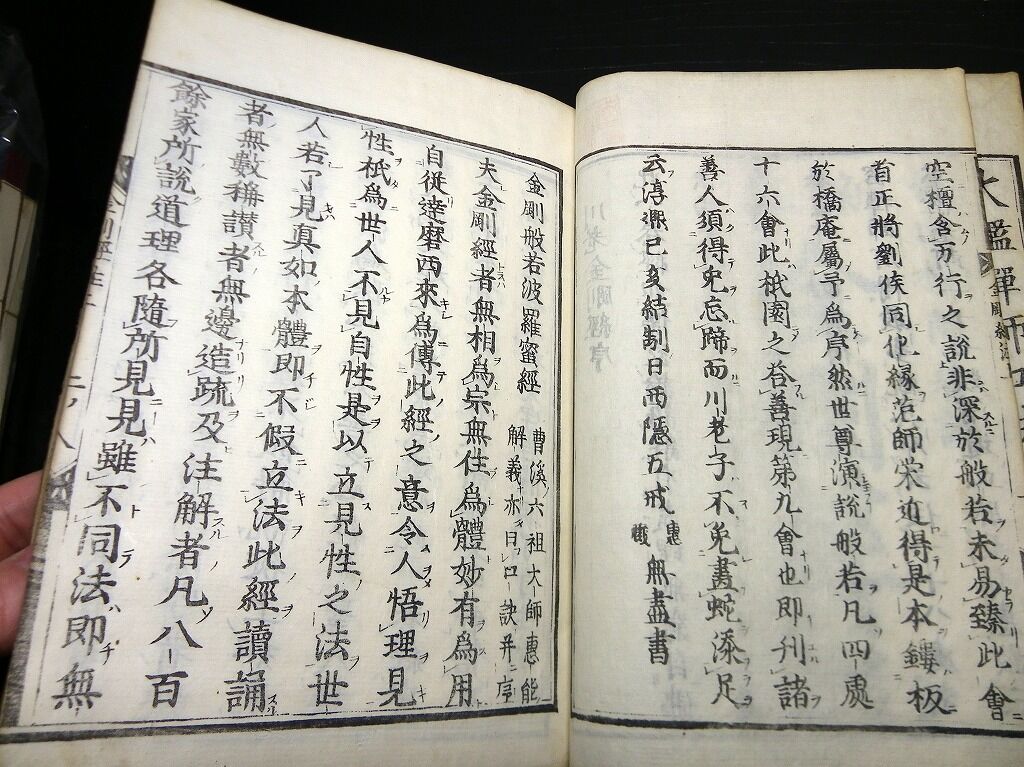 空檀含万行之說非深於般若未易臻此會
首正將劉侯同化緣范師栄近得是本鏤板
於橋庵屬予爲序然世尊演說般若凡四處
十六會此祇園之荅善現第九會也即刊諸
善人須得兎忘蹄而川老子不免畫蛇添足
云淳凞已亥結制日西隱五戒 無盡書
金剛般若波羅蜜經
曹溪六祖大師惠能
解義亦曰口訣并序
夫金剛經者無相爲宗無住爲體妙有爲用
自從達磨西來爲傳此經之意令人悟理見
性祇爲世人不見自性是以立見性之法世
人若了見真如本體即不假立法此經讀誦
者無數稱讃者無邊造疏及注解者凡八百
餘家所說道理各隨所見見雖不同法即無